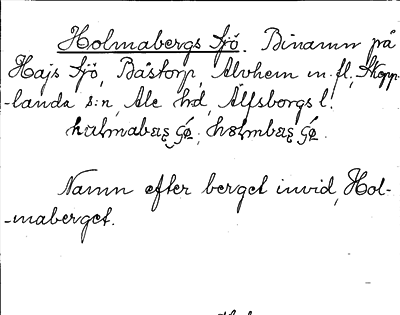 Holmabergs sjö. Binamn på
Hajs sjö, Båstorp, Alvhem m. fl., Skepp-
-landa s:n, Ale hd, Älfsborgs l.
Namn efter berget invid, Hol-
-maberget.